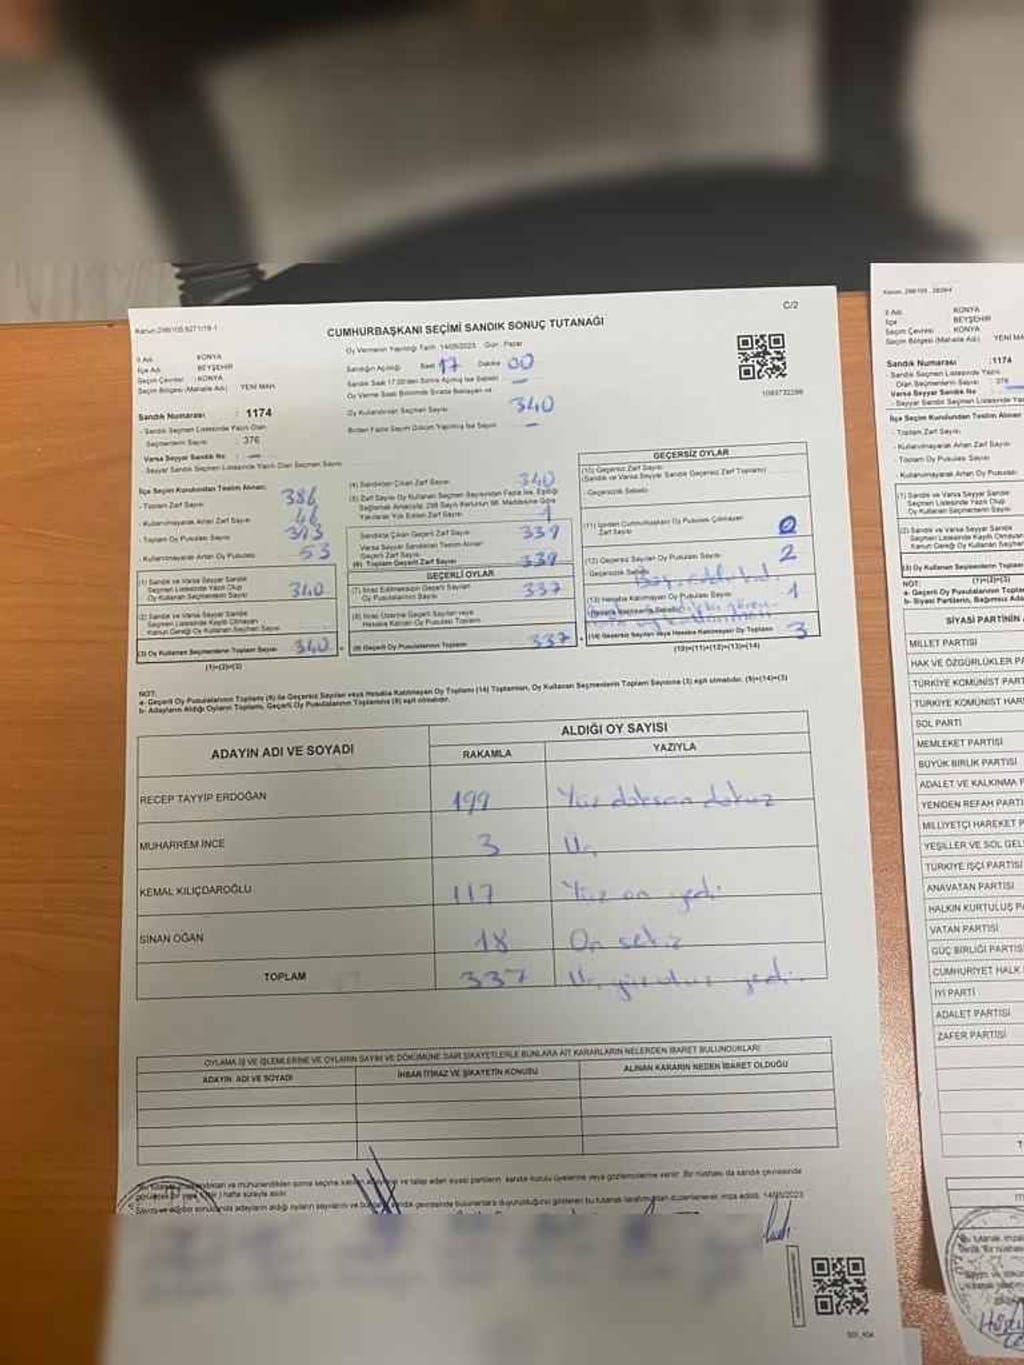 C/2
Kanun:298/105,6271/19-1
CUMHURBAŞKANI SEÇİMİ SANDIK SONUÇ TUTANAĞI
İl Adı : KONYA
İlçe Adı : BEYŞEHİR
Seçim Çevresi : KONYA
Seçim Bölgesi (Mahalle Adı) : YENİ MAH.
Oy Vermenin Yapıldığı Tarih: 14/05/2023 Gün: Pazar
Sandığın Açıldığı Saat 17 Dakika 00
Oy Kullandıran Seçmen Sayısı 340
Birden Fazla Seçim Döküm Yapılmış İse Sayısı –
1093732286
Sandık Numarası : 1174
- Sandık Seçmen Listesinde Yazılı Olan
Seçmenlerin Sayısı : 376
Varsa Seyyar Sandık No : –
- Seyyar Sandık Seçmen Listesinde Yazılı Olan Seçmen Sayısı
İlçe Seçim Kurulundan Teslim Alınan;
- Toplam Zarf Sayısı 386
- Kullanılmayarak Artan Zarf Sayısı 46
- Toplam Oy Pusulası Sayısı
- Kullanılmayarak Artan Oy Pusulası 53
(1) Sandık ve Varsa Seyyar Sandık
Seçmen Listesinde Yazılı Olup
Oy Kullanan Seçmenlerin Sayısı 340
(2) Sandık ve Varsa Seyyar Sandık
Seçmen Listesinde Kayıtlı Olmayan
Kanun Gereği Oy Kullanan Seçmen Sayısı
(3) Oy Kullanan Seçmenlerin Toplam Sayısı 340
(1)+(2)=(3)
(4) Sandıktan Çıkan Zarf Sayısı 340
(5) Zarf Sayısı Oy Kullanan Seçmen Sayısından Fazla İse, Eşitliği
Sağlamak Amacıyla; 298 Sayılı Kanunun 98. Maddesine Göre
Yakılarak Yok Edilen Zarf Sayısı 1
Sandıkta Çıkan Geçerli Zarf Sayısı 339
Varsa Seyyar Sandıktan Teslim Alınan
Geçerli Zarf Sayısı
(6) Toplam Geçerli Zarf Sayısı 339
GEÇERLİ OYLAR
(7) İtiraz Edilmeksizin Geçerli Sayılan
Oy Pusulalarının Sayısı 337
(8) İtiraz Üzerine Geçerli Sayılan veya
Hesaba Katılan Oy Pusulaları Toplamı
(9) Geçerli Oy Pusulalarının Toplamı 337
GEÇERSİZ OYLAR
(10) Geçersiz Zarf Sayısı
(Sandık ve Varsa Seyyar Sandık Geçersiz Zarf Toplamı)
- Geçersizlik Sebebi:
(11) İçinden Cumhurbaşkanı Oy Pusulası Çıkmayan
Zarf Sayısı 0
(12) Geçersiz Sayılan Oy Pusulası Sayısı 2
- Geçersizlik Sebebi:
(13) Hesaba Katılmayan Oy Pusulası Sayısı 1
(14) Geçersiz Sayılan veya Hesaba Katılmayan Oy Toplamı 3
(10)+(11)+(12)+(13)=(14)
NOT:
a- Geçerli Oy Pusulalarının Toplamı (9) ile Geçersiz Sayılan veya Hesaba Katılmayan Oy Toplamı (14) Toplamının, Oy Kullanan Seçmenlerin Toplam Sayısına (3) eşit olmalıdır. (9)+(14)=(3)
b- Adayların Aldığı Oyların Toplamı, Geçerli Oy Pusulalarının Toplamına (9) eşit olmalıdır.
ADAYIN ADI VE SOYADI
ALDIĞI OY SAYISI
RAKAMLA YAZIYLA
RECEP TAYYİP ERDOĞAN 199 Yüz doksan dokuz
MUHARREM İNCE 3 Üç
KEMAL KILIÇDAROĞLU 117 Yüz on yedi
SİNAN OĞAN 18 On sekiz
TOPLAM 337 Üç yüz otuz yedi
OYLAMA İŞ VE İŞLEMLERİNE VE OYLARIN SAYIM VE DÖKÜMÜNE DAİR ŞİKAYETLERLE BUNLARA AİT KARARLARIN NELERDEN İBARET BULUNDUKLARI
ADAYIN ADI VE SOYADI
İHBAR İTİRAZ VE ŞİKAYETİN KONUSU
ALINAN KARARIN NEDEN İBARET OLDUĞU
İl Adı : KONYA
İlçe : BEYŞEHİR
Seçim Çevresi : KONYA
Seçim Bölgesi (Mahalle Adı) : YENİ MA
Sandık Numarası : 1174
- Sandık Seçmen Listesinde Yazılı
Olan Seçmenlerin Sayısı : 376
Varsa Seyyar Sandık No
İlçe Seçim Kurulundan Teslim Alınan
- Toplam Zarf Sayısı
- Kullanılmayarak Artan Zarf Sayısı
- Toplam Oy Pusulası Sayısı
- Kullanılmayarak Artan Oy Pusulası
(1) Sandık ve Varsa Seyyar Sandık
Seçmen Listesinde Yazılı Olup
Oy Kullanan Seçmenlerin Sayısı
(2) Sandık ve Varsa Seyyar Sandık
Seçmen Listesinde Kayıtlı Olmayan
Kanun Gereği Oy Kullanan Seçmen
(3) Oy Kullanan Seçmenlerin Toplam
(1)+(2)=(3)
NOT:
a- Geçerli Oy Pusulalarının Toplam
b- Siyasi Partilerin, Bağımsız Ada
SİYASİ PARTİNİN A
MİLLET PARTİSİ
HAK VE ÖZGÜRLÜKLER PA
TÜRKİYE KOMÜNİST PART
TÜRKİYE KOMÜNİST HAR
SOL PARTİ
MEMLEKET PARTİSİ
BÜYÜK BİRLİK PARTİSİ
ADALET VE KALKINMA P
YENİDEN REFAH PARTİ
MİLLİYETÇİ HAREKET P
YEŞİLLER VE SOL GEL
TÜRKİYE İŞÇİ PARTİSİ
ANAVATAN PARTİSİ
HALKIN KURTULUŞ PA
VATAN PARTİSİ
GÜÇ BİRLİĞİ PARTİS
CUMHURİYET HALK
İYİ PARTİ
ADALET PARTİSİ
ZAFER PARTİSİ